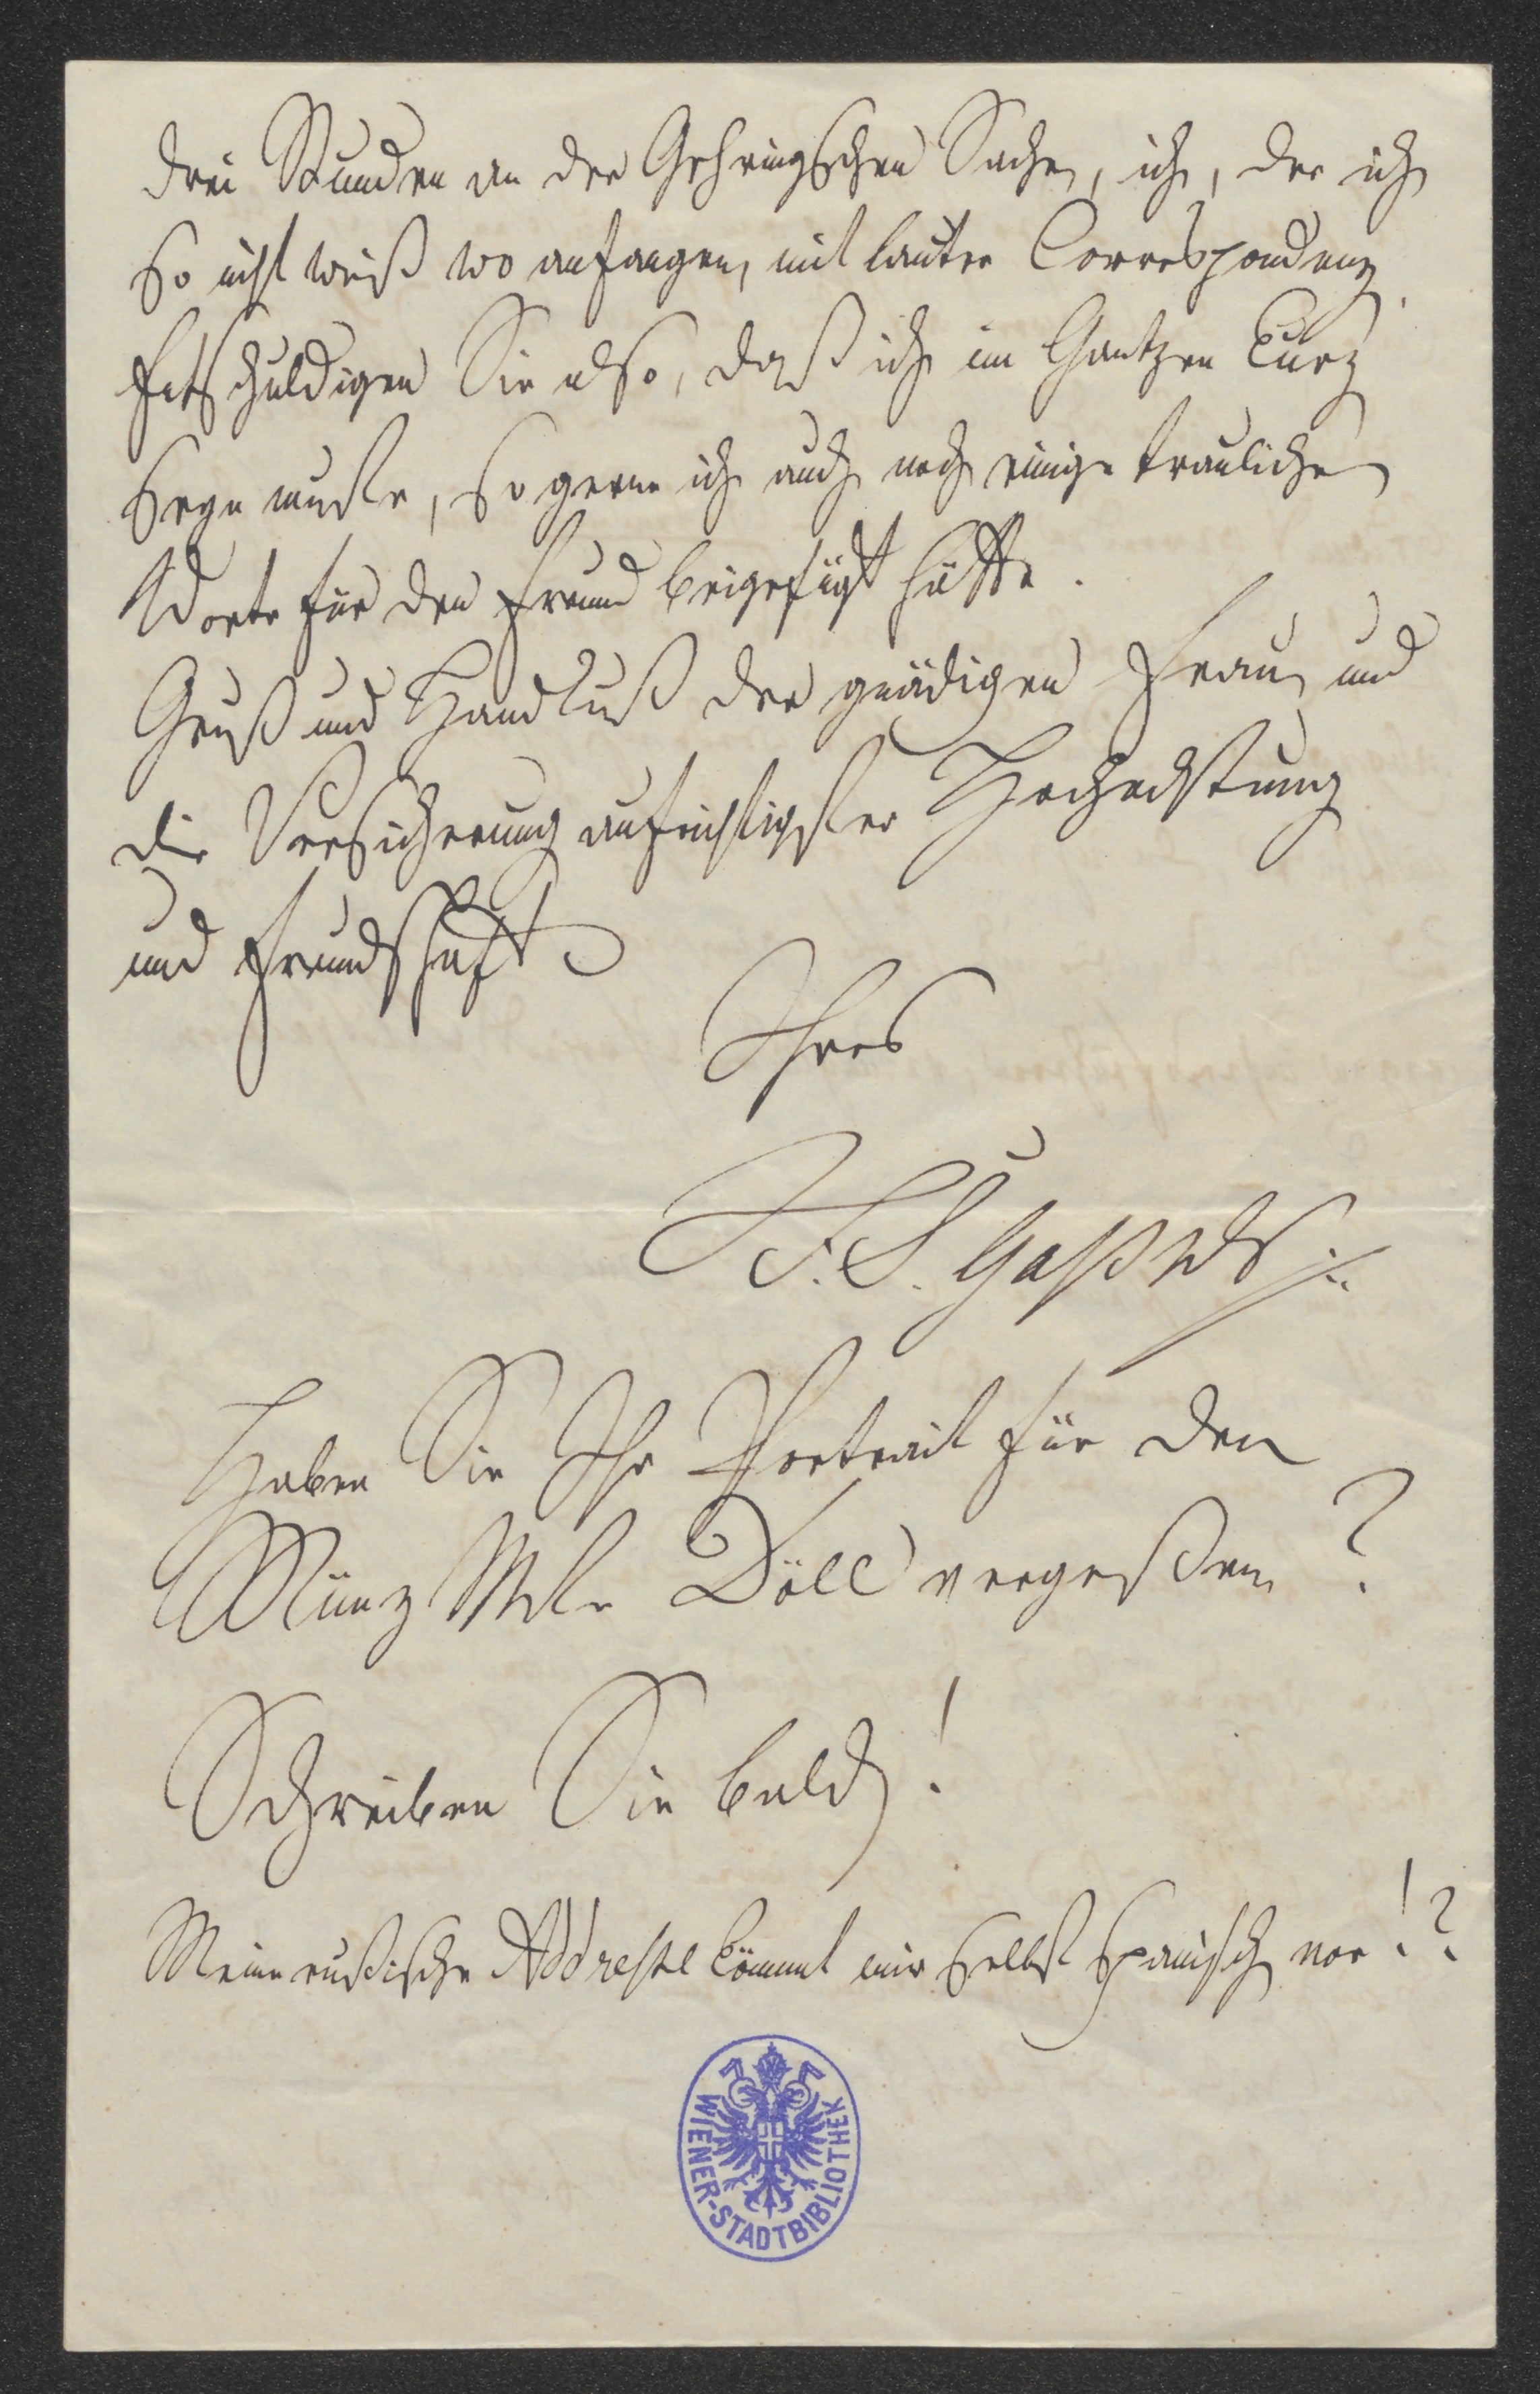 drei Stunden an der Gehringschen Sache, ich, der ich
so nicht weiß wo anfangen, mit lauter Correspondenz.
Entschuldigen Sie also, daß ich im Gantzen kurz
seyn mußte, so gerne ich auch noch einige trauliche
Worte für den Freund beigefügt hätte.
Gruß und Handkuß der gnädigen Frau, und
die Versicherung aufrichtigster Hochachtung
und Freundschaft
Ihres
F. S. Gaßner
Haben Sie Ihr Portrait für den
Münz Döll vergeßen?
Schreiben Sie bald!
Meine rußische Addresse kömmt mir selbst spanisch vor!?
WIENER-STADTBIBLIOTHEK